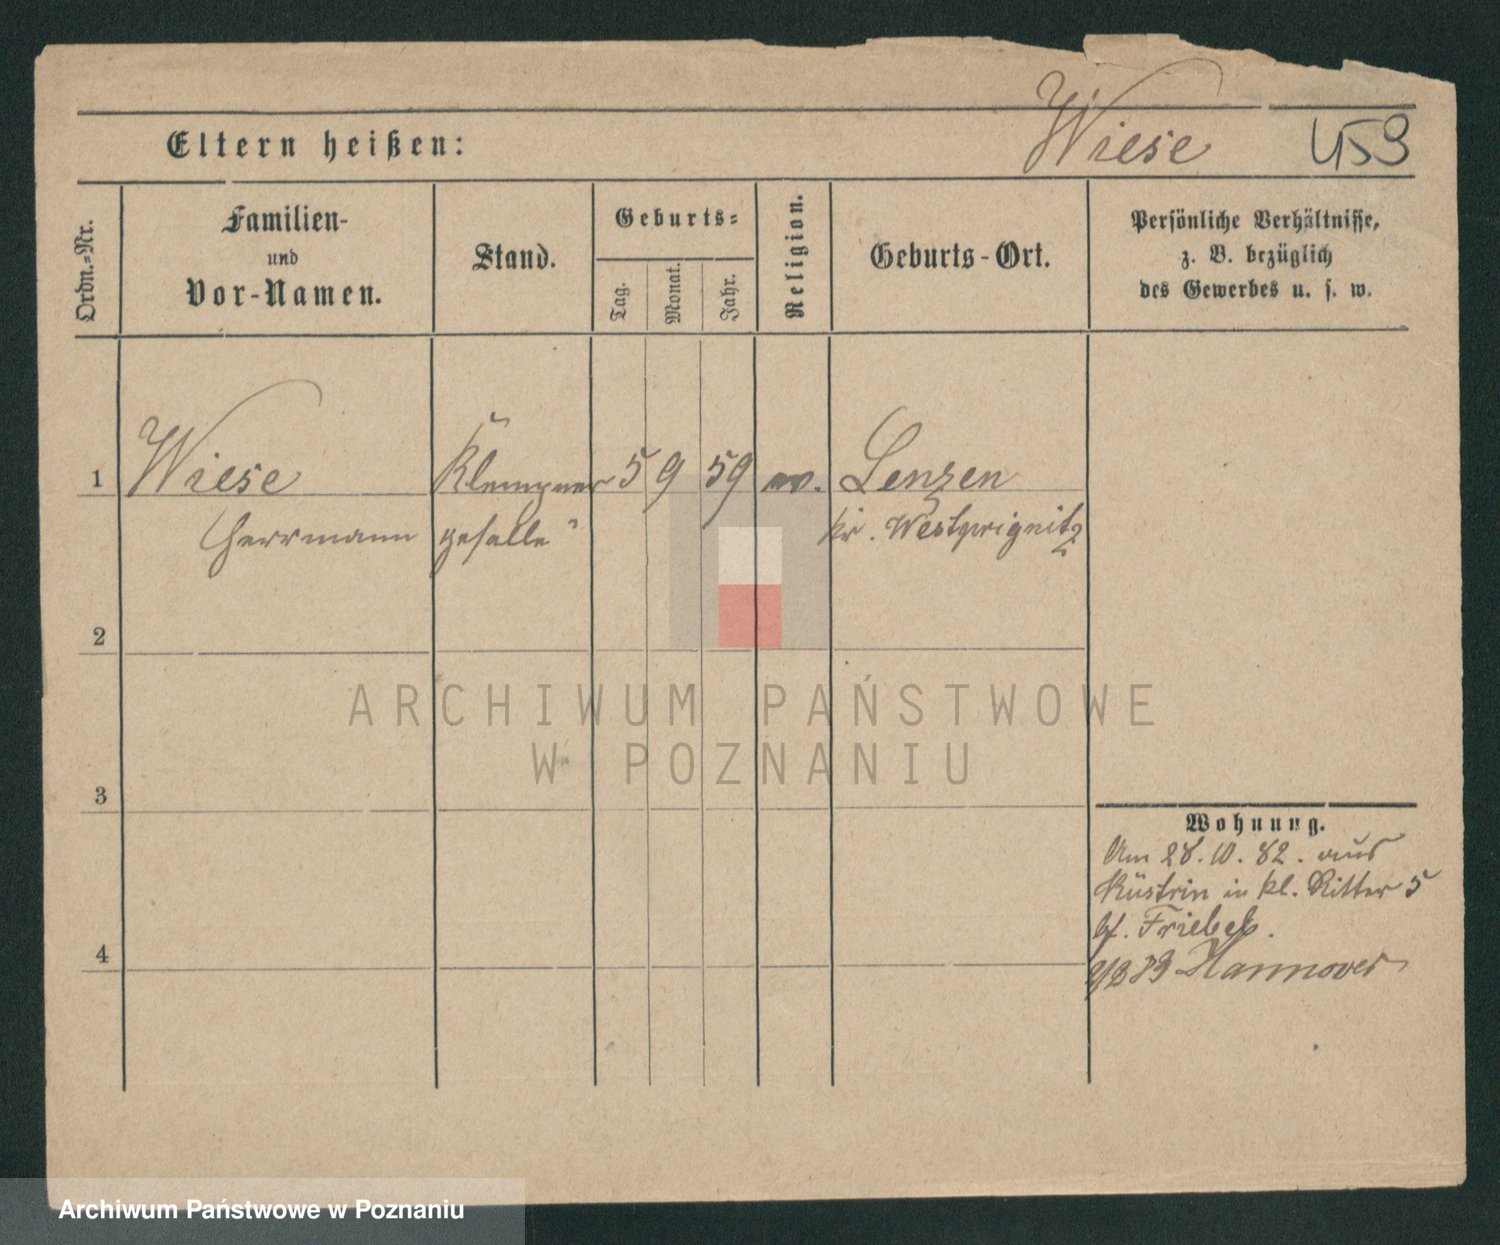 Wiese 459
Eltern heißen:
Ordn.=Nr.
Familien-
und
Vor-Namen.
Stand.
Geburts=
Tag.
Monat.
Jahr.
Religion.
Geburts-Ort.
Persönliche Verhältnisse,
z. B. bezüglich
des Gewerbes u. s. w.
1 Wiese Klempner 5 9 59 ev. Lenzen
Herrmann geselle Kr. Westprignitz
2
3
4
Wohnung.
Am 28.10.82. aus
Küstrin in kl. Ritter 5
b/. Friebel.
83 Hannover
ARCHIWUM PAŃSTWOWE
W POZNANIU
Archiwum Państwowe w Poznaniu